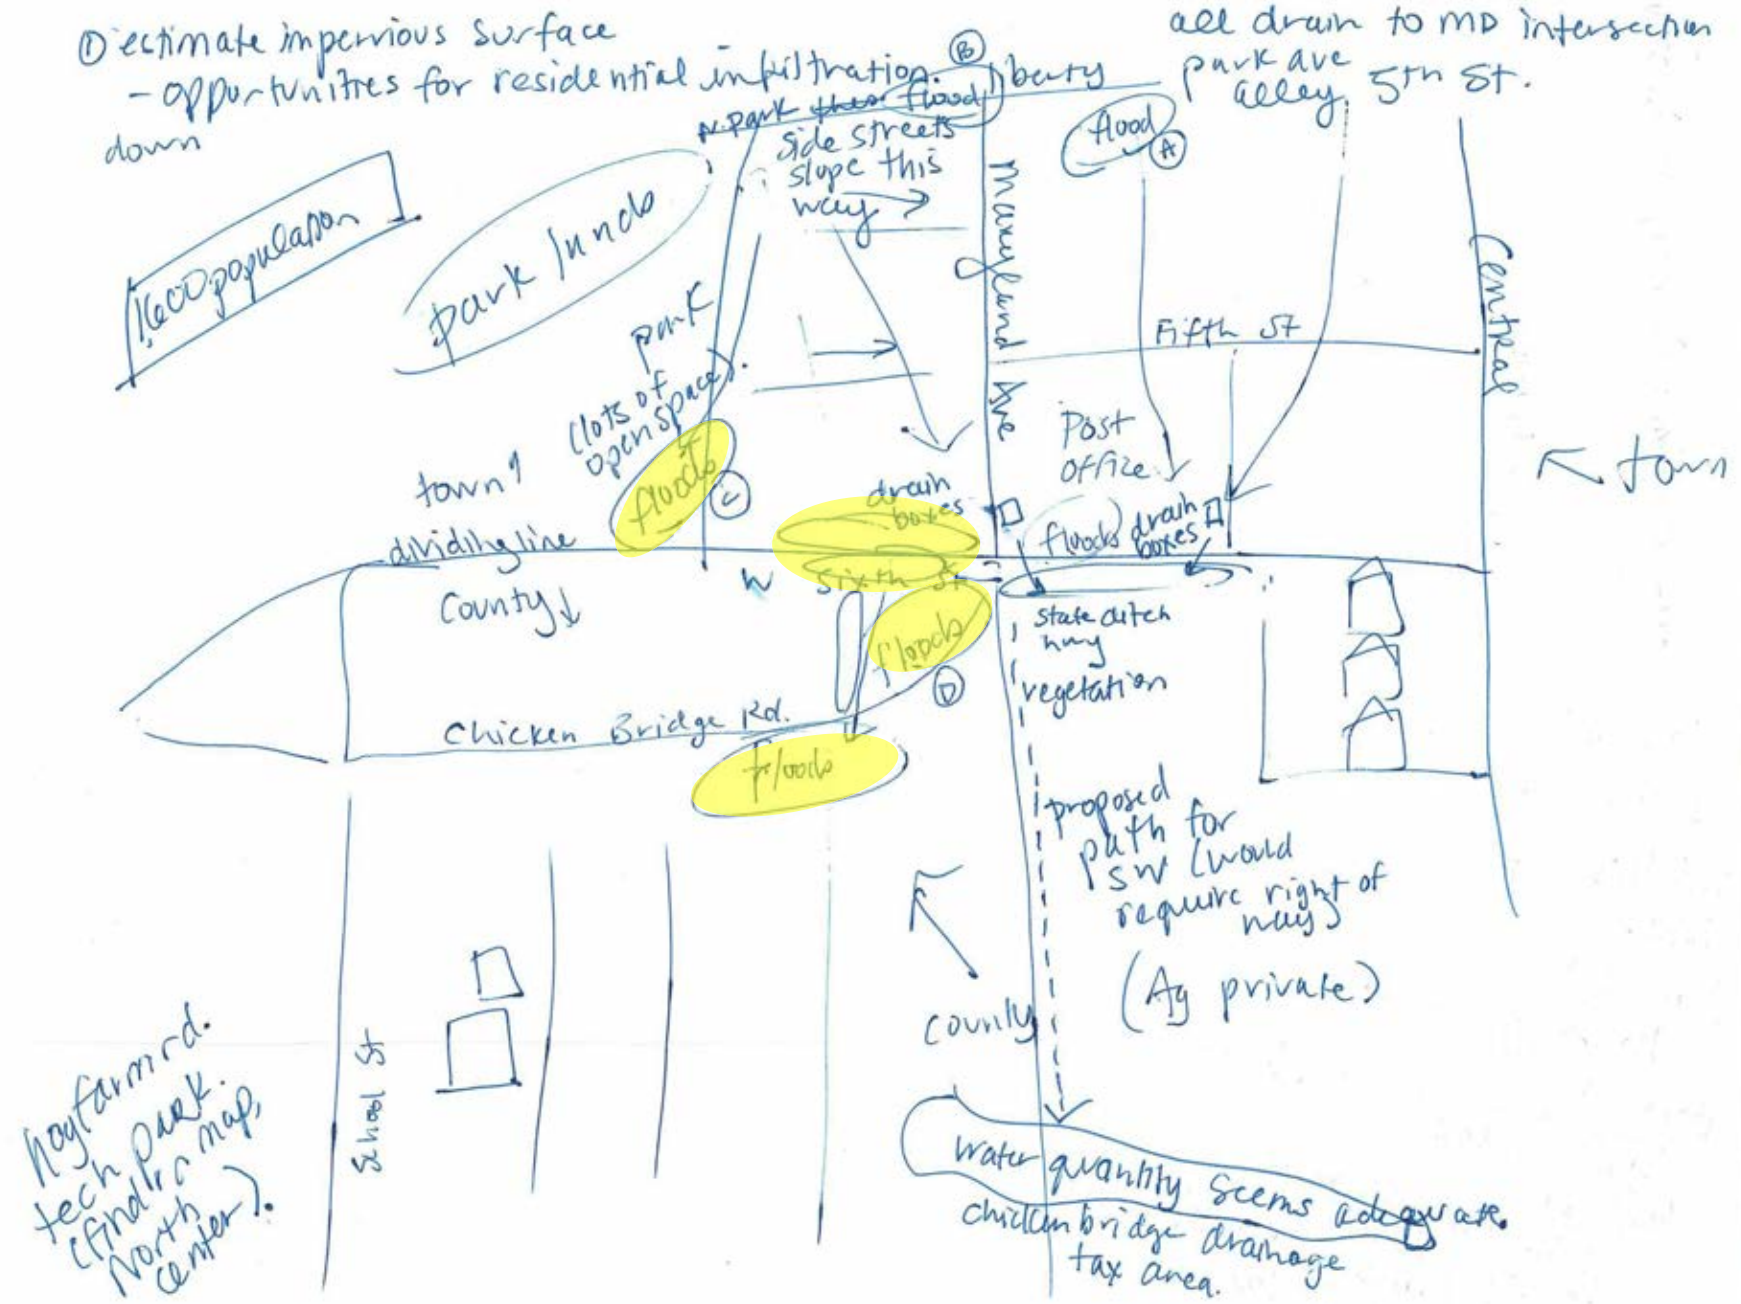 ① estimate impervious surface
- opportunities for residential infiltration.
down
all drain to MD intersection
park ave
alley, 5th St.
Ⓑ
liberty
N. Park flood
side streets
slope this
way
flood
Ⓐ
1600 population
park lands
park
(lots of
open space).
floods
Ⓒ
Maryland Ave
Fifth St
Central
Post
Office
town
town↑
dividing line
County↓
drain
boxes
floods
drain
boxes
W Sixth St
floods
Ⓓ
state ditch
hwy
vegetation
Chicken Bridge Rd.
floods
proposed
path for
SW (would
require right of
way)
(Ag private)
County
School St
tech park.
(find map,
North
center).
water quantity seems adequate.
chicken bridge drainage
tax area.